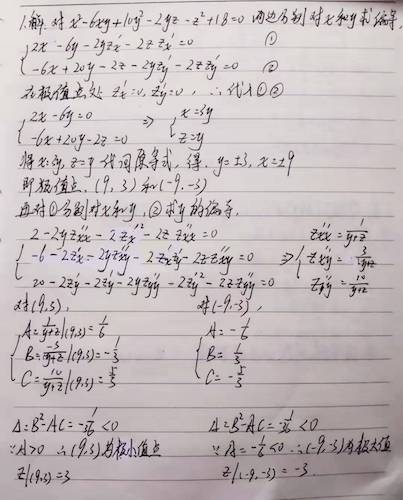 1.解. 对 x²-6xy+10y²-2yz-z²+18=0 两边分别对x和y求偏导,
{2x-6y-2yz'x-2zz'x=0 ①
-6x+20y-2z-2yz'y-2zz'y=0 ②
在极值点处 z'x=0, z'y=0, ∴代入①②
{2x-6y=0 ⇒ {x=3y
-6x+20y-2z=0 z=y
将x=3y, z=y 代回原等式, 得. y=±3, x=±9
即极值点, (9, 3) 和(-9, -3)
再对①分别对x和y, ②求y的偏导,
{2-2yz''xx-2z'x²-2zz''xx=0 z''xx=1/y+z
-6-2z'x-2yz''xy-2z'xz'y-2zz''xy=0 ⇒ {z''xy=-3/y+z
20-2z'y-2z'y-2yz''yy-2z'y²-2zz''yy=0 z''yy=10/y+z
对(9,3), 对(-9,-3),
{A=1/y+z|(9,3)=1/6 {A=-1/6
B=-3/y+z|(9,3)=-1/2 B=1/2
C=10/y+z|(9,3)=5/3 C=-5/3
Δ=B²-AC=-1/36<0 Δ=B²-AC=-1/36<0
∵A>0 ∴(9,3)为极小值点 ∵A=-1/6<0 ∴(-9,-3)为极大值
z|(9,3)=3 z|(-9,-3)=-3